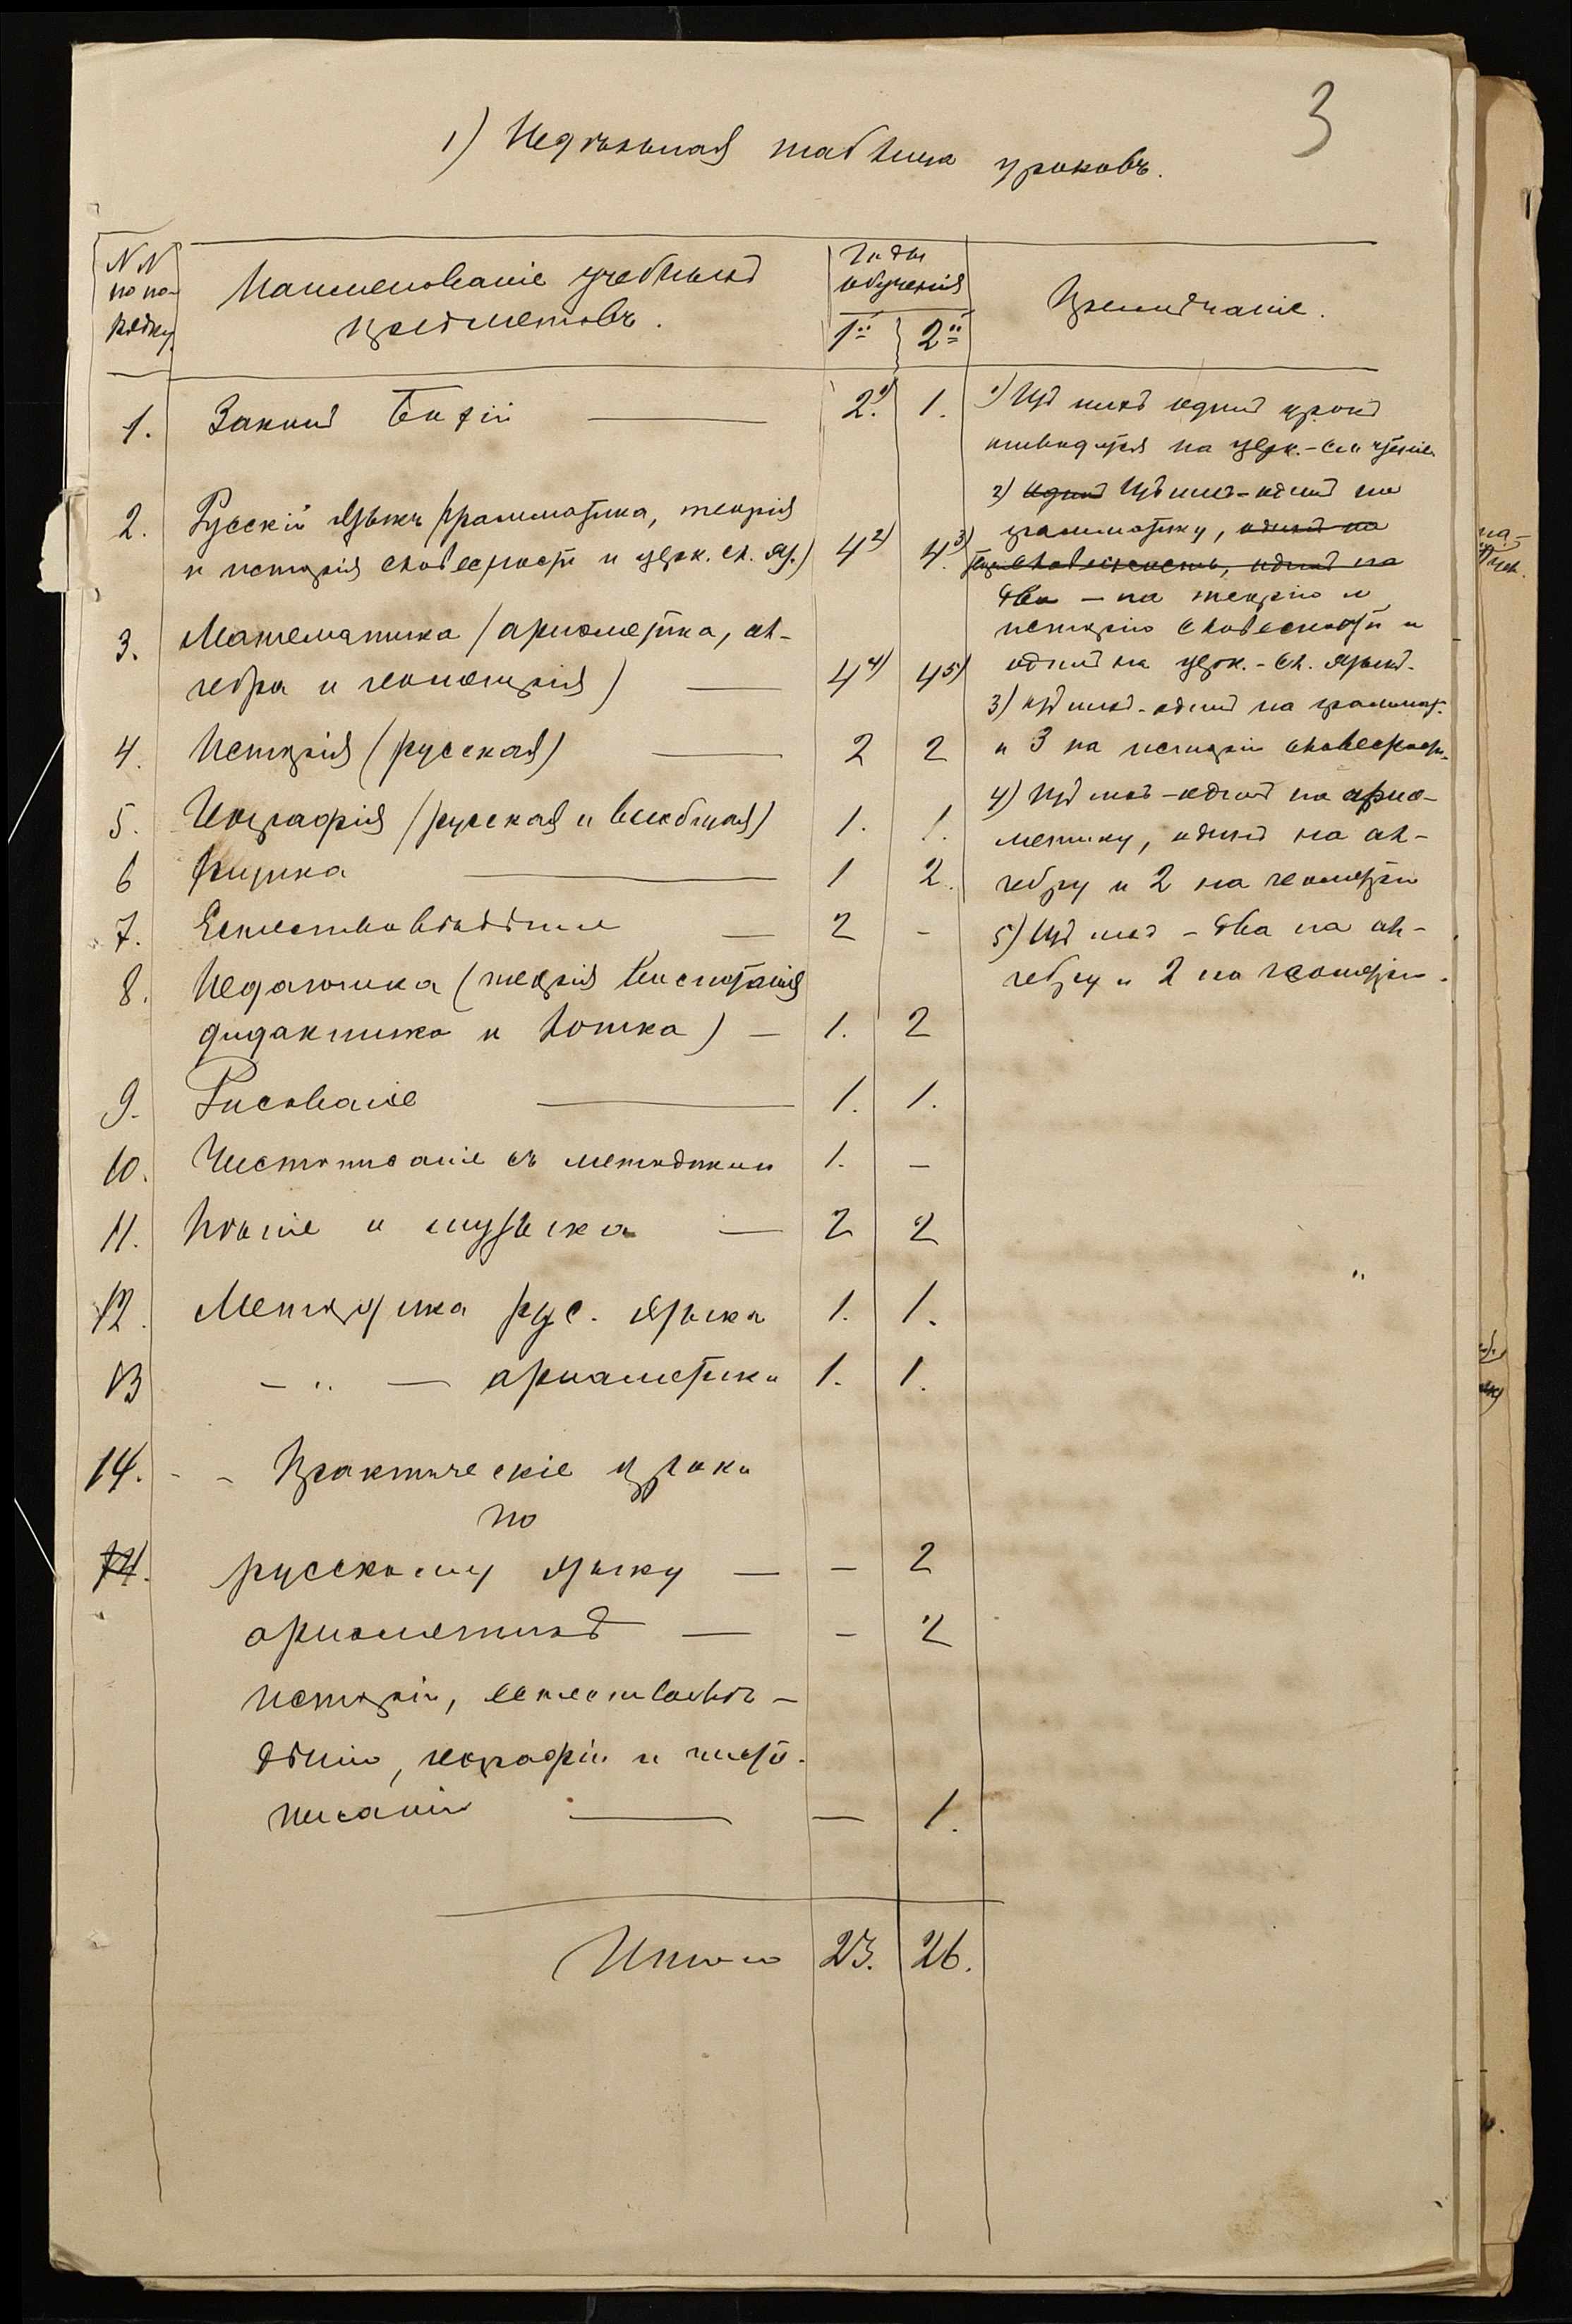 3
1) Недѣльная таблица уроковъ.
NN по порядку
Наименованіе учебныхъ предметовъ.
Годы обученія
1й 2й
Примѣчаніе.
1. Законъ Божій — 2.1) 1.
2. Русскій языкъ (грамматика, теорія
и исторія словесности и церк. сл. яз.) 4 2) 4. 3)
3. Математика (ариѳметика, ал-
гебра и геометрія) — 4 4) 4 5)
4. Исторія (русская) — 2 2
5. Географія (русская и всеобщая) 1. 1.
6 Физика — 1 2.
7. Естествовѣдѣніе — 2 -
8. Педагогика (теорія воспитанія
дидактика и логика) — 1. 2
9. Рисованіе — 1. 1.
10. Чистописаніе съ методикой 1. —
11. Пѣніе и музыка — 2 2
12. Методика рус. языка 1. 1.
13 — " — ариѳметики 1. 1.
14. - - Практическіе уроки
по
14. русскому языку — — 2
ариѳметикѣ — - 2
исторіи, естествовѣ-
дѣнію, географіи и чисто-
писанію — — 1.
Итого 23. 26.
1) Изъ нихъ одинъ урокъ
отводится на церк.-сл. чтеніе
2) Одинъ Изъ нихъ - одинъ на
грамматику, одинъ на
словесность, одинъ на
два — на теорію и
исторію словесности и
одинъ на церк.-сл. языкъ.
3) Изъ нихъ - одинъ на граммат.
и 3 на исторію словесности.
4) Изъ нихъ - одинъ на ариѳ-
метику, одинъ на ал-
гебру и 2 на геометрію
5) Изъ нихъ - два на ал-
гебру и 2 на геометрію.